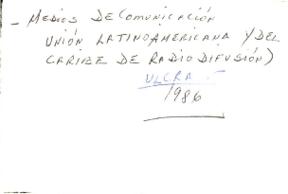 - MEDIOS DE COMUNICACIÓN
UNIÓN LATINOAMERICANA Y DEL
CARIBE DE RADIO DIFUSIÓN)
ULCRA
1986